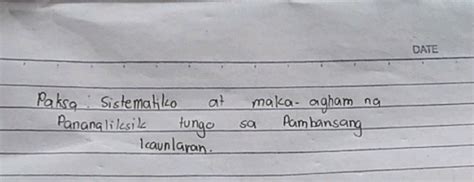 DATE
Paksa : Sistematiko at maka-agham na
Pananaliksik tungo sa Pambansang
kaunlaran.